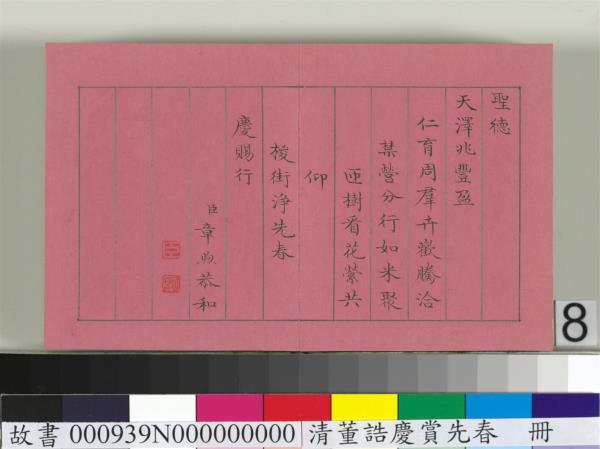 聖德
天澤兆豐盈
仁育周羣卉歡騰洽
棊營分行如米聚
匝樹看花縈共
仰
梭街淨先春
慶賜行
臣章煦恭和
8
故書 000939N000000000 清董誥慶賞先春 冊